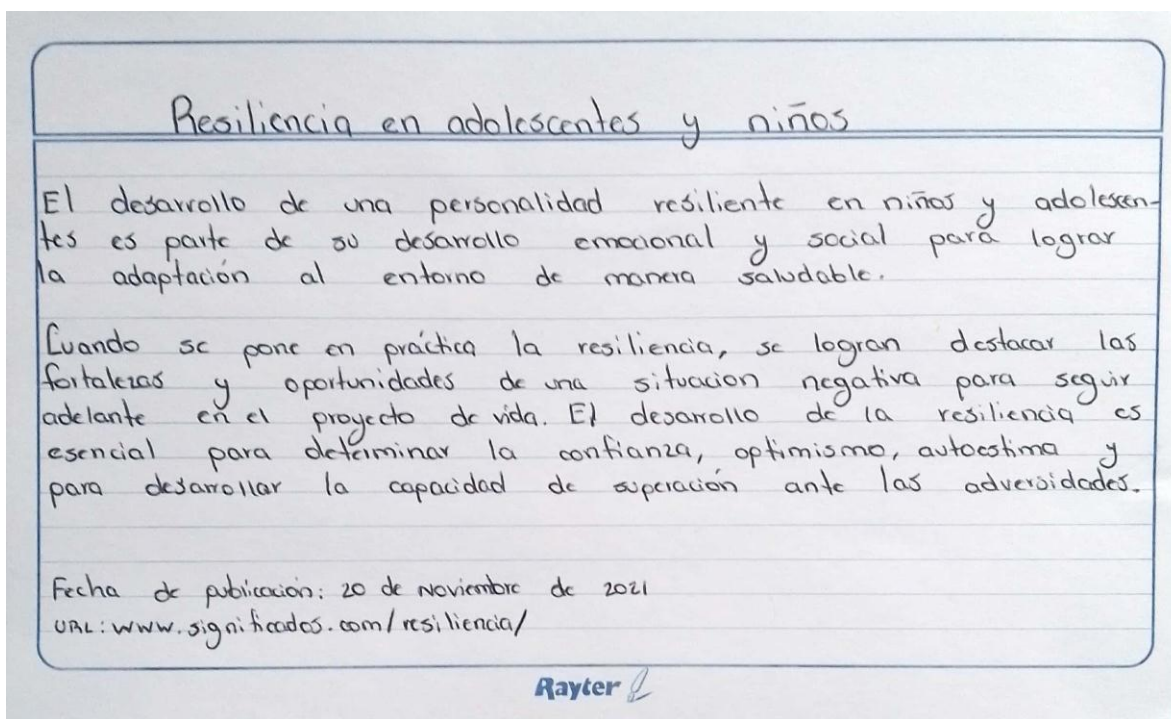 Resiliencia en adolescentes y niños
El desarrollo de una personalidad resiliente en niños y adolescen-
tes es parte de su desarrollo emocional y social para lograr
la adaptación al entorno de manera saludable.
Cuando se pone en práctica la resiliencia, se logran destacar las
fortalezas y oportunidades de una situacion negativa para seguir
adelante en el proyecto de vida. El desarrollo de la resiliencia es
esencial para determinar la confianza, optimismo, autoestima y
para desarrollar la capacidad de superación ante las adversidades.
Fecha de publicación: 20 de Noviembre de 2021
URL: www.significados.com/resiliencia/
Rayter